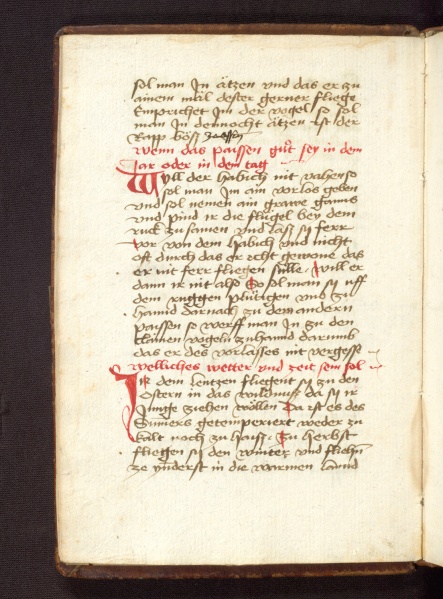 sol man jn ätzen vnd das er zu
ainem mäl dester gerner fliege
Emprichet jm der vogel so sol
man jn dennocht ätzen ist der
rapp böß
wenn das paissen gůt sey in dem
Jar oder in dem tag
Wyll der habich nit vahen so
sol man im ain vorlos geben
vnd sol nemen ain grawe ganns
vnd pind ir die flügel bey dem
ruck zu samen vnd lass sy ferr
vor von dem habich vnd nicht
oft durch das er icht gewone das
er nit ferr fliegen sülle. Will er
dann ir nit also So sol man sy vff
dem ruggen plürigen vnd zu
hannd darnach zu dem andern
paissen so werff man jn zu den
klainen vogeln zuhannd darumb
das er des vorlasses nit vergesse
Welliches wetter vnd zeit sein sol
In dem lentzen fliegent sy zu den
Ostern in das wildnuß da sy ir
Junge ziehen wöllen Da ist es des
Sumers getemperiert weder zu
kalt noch zu haiß. Zu herbst
fliegen sy den winter vnd fliehn
ze vnderst in die warmen lannd